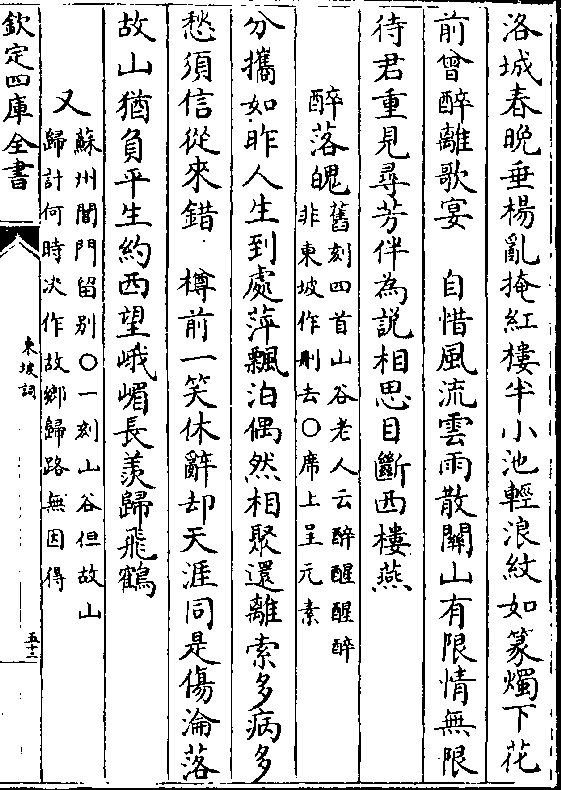 洛城春晚垂楊亂掩紅樓半小池輕浪紋如篆燭下花
前曾醉離歌宴　自惜風流雲雨散關山有限情無限
待君重見尋芳伴為說相思目斷西樓燕
醉落魄舊刻四首山谷老人云醉醒醒醉
非東坡作刪去○席上呈元素
分攜如昨人生到處萍飄泊偶然相聚還離索多病多
愁須信從來錯　樽前一笑休辭却天涯同是傷淪落
故山猶負平生約西望峨嵋長羨歸飛鶴
又蘇州閶門留别○一刻山谷但故山
歸計何時决作故鄉歸路無因得
欽定四庫全書
東坡詞
五十二